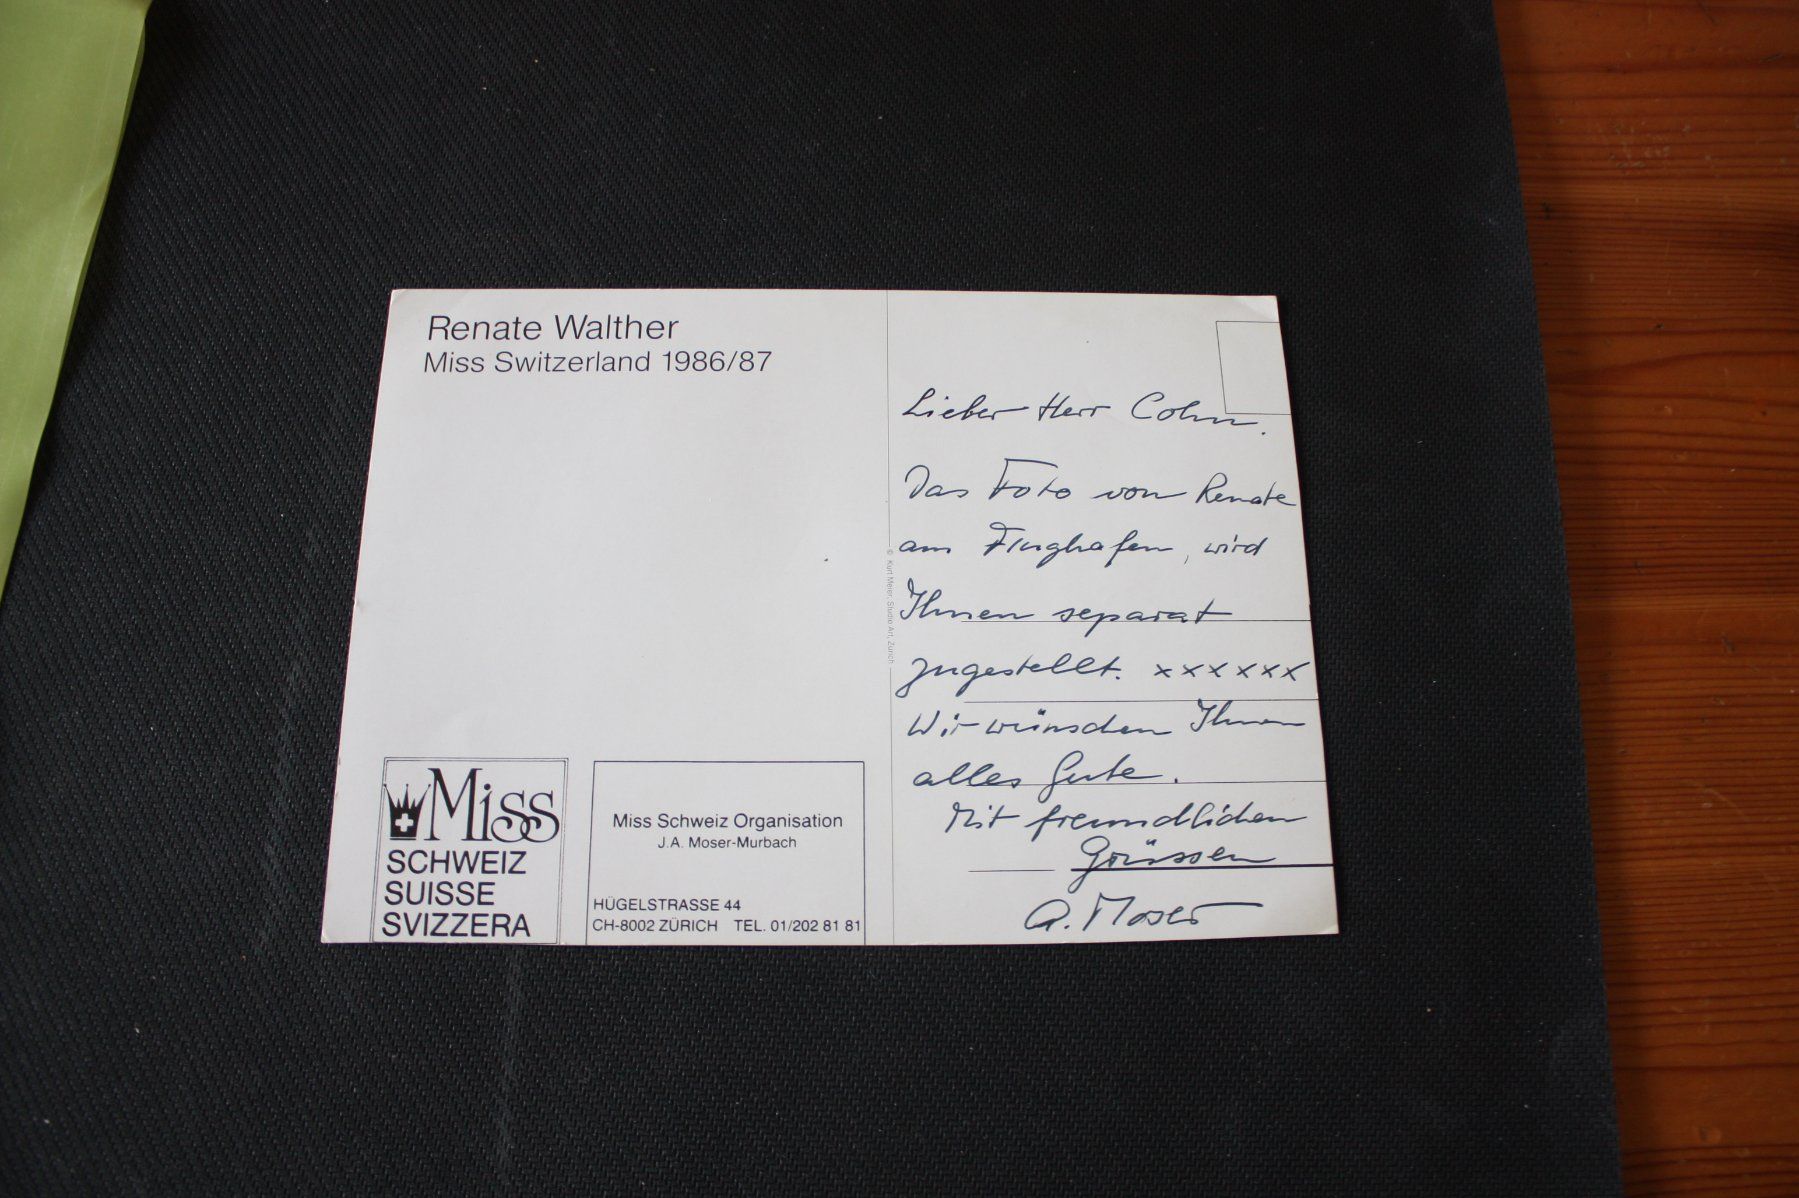 Renate Walther
Miss Switzerland 1986/87
Miss
SCHWEIZ
SUISSE
SVIZZERA
Miss Schweiz Organisation
J.A. Moser-Murbach
HÜGELSTRASSE 44
CH-8002 ZÜRICH TEL. 01/202 81 81
© Kurt Meier, Studio Art, Zürich
Lieber Herr Cohn.
Das Foto von Renate
am Flughafen, wird
Ihnen separat
zugestellt. xxxxxx
Wir wünschen Ihnen
alles Gute.
Mit freundlichen
Grüssen
A. Moser